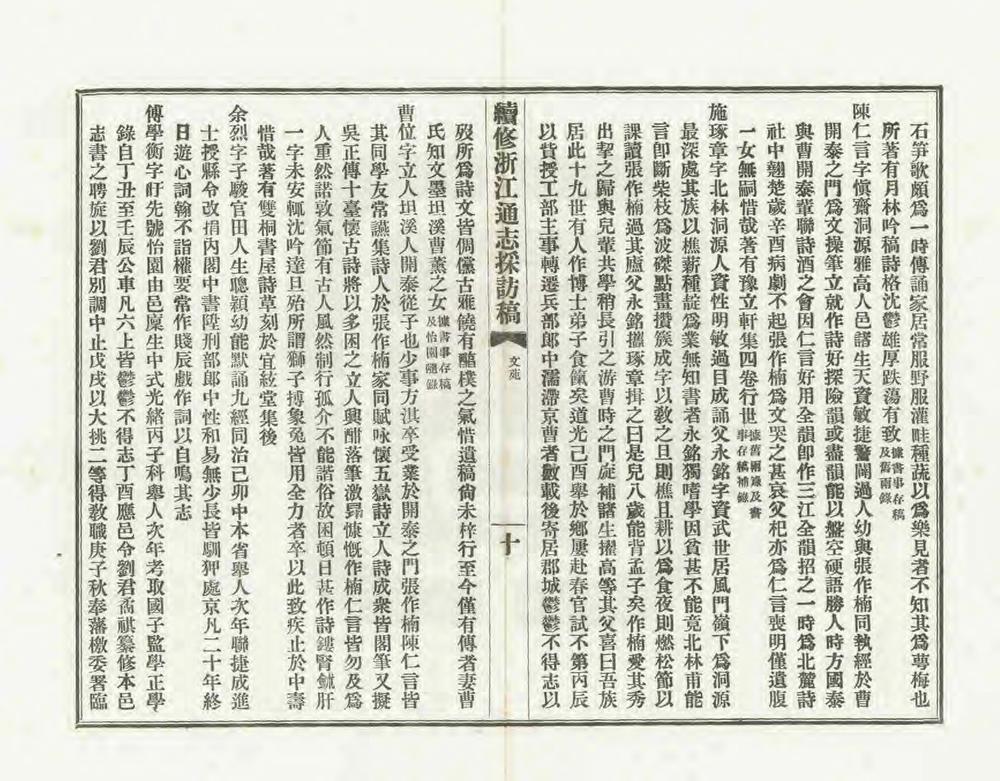 石笋歌頗爲一時傳誦家居常服野服灌畦種蔬以爲樂見者不知其爲萼梅也
所著有月林吟稿詩格沈鬱雄厚跌蕩有致據書事存稿及舊雨錄
陳仁言字愼齋洞源雅高人邑諸生天資敏捷警闢過人幼與張作楠同執經於曹
開泰之門爲文操筆立就作詩好探險韻或盡韻能以盤空硬語勝人時方國泰
與曹開泰輩聯詩酒之會因仁言好用全韻卽作三江全韻招之一時爲北麓詩
社中翹楚歲辛酉病劇不起張作楠爲文哭之甚哀父杞亦爲仁言喪明僅遺腹
一女無嗣惜哉著有豫立軒集四卷行世據舊雨錄及書事存稿補錄
施琢章字北林洞源人資性明敏過目成誦父永銘字資武世居風門嶺下爲洞源
最深處其族以樵薪種靛爲業無知書者永銘獨嗜學因貧甚不能竟北林甫能
言卽斷柴枝爲波磔點畫攢簇成字以敎之旦則樵且耕以爲食夜則燃松節以
課讀張作楠過其廬父永銘攜琢章揖之曰是兒八歲能背孟子矣作楠愛其秀
出挈之歸與兒輩共學稍長引之游曹時之門旋補諸生擢高等其父喜曰吾族
居此十九世有人作博士弟子食餼矣道光己酉舉於鄉屢赴春官試不第丙辰
以貲授工部主事轉遷兵部郎中濡滯京曹者數載後寄居郡城鬱鬱不得志以
續修浙江通志採訪稿
文苑
十
歿所爲詩文皆倜儻古雅饒有醞樸之氣惜遺稿尙未梓行至今僅有傳者妻曹
氏知文墨坦溪曹薰之女據書事存稿及怡園隨錄
曹位字立人坦溪人開泰從子也少事方淇卒受業於開泰之門張作楠陳仁言皆
其同學友常讌集詩人於張作楠家同賦咏懷五嶽詩立人詩成衆皆閣筆又擬
吳正傳十臺懷古詩將以多困之立人興酣落筆激昂慷慨作楠仁言皆勿及爲
人重然諾敦氣節有古人風然制行孤介不能諧俗故困頓日甚作詩鏤腎鉥肝
一字未安輒沈吟達旦殆所謂獅子搏象兔皆用全力者卒以此致疾止於中壽
惜哉著有雙桐書屋詩草刻於宜絃堂集後
余烈字子駿官田人生聰穎幼能默誦九經同治己卯中本省舉人次年聯捷成進
士授縣令改捐內閣中書陞刑部郎中性和易無少長皆馴狎處京凡二十年終
日遊心詞翰不詣權要常作賤辰戲作詞以自鳴其志
傅學衡字旰先號怡園由邑廩生中式光緒丙子科舉人次年考取國子監學正學
錄自丁丑至壬辰公車凡六上皆鬱鬱不得志丁酉應邑令劉君矞祺纂修本邑
志書之聘旋以劉君別調中止戊戌以大挑二等得敎職庚子秋奉藩檄委署臨